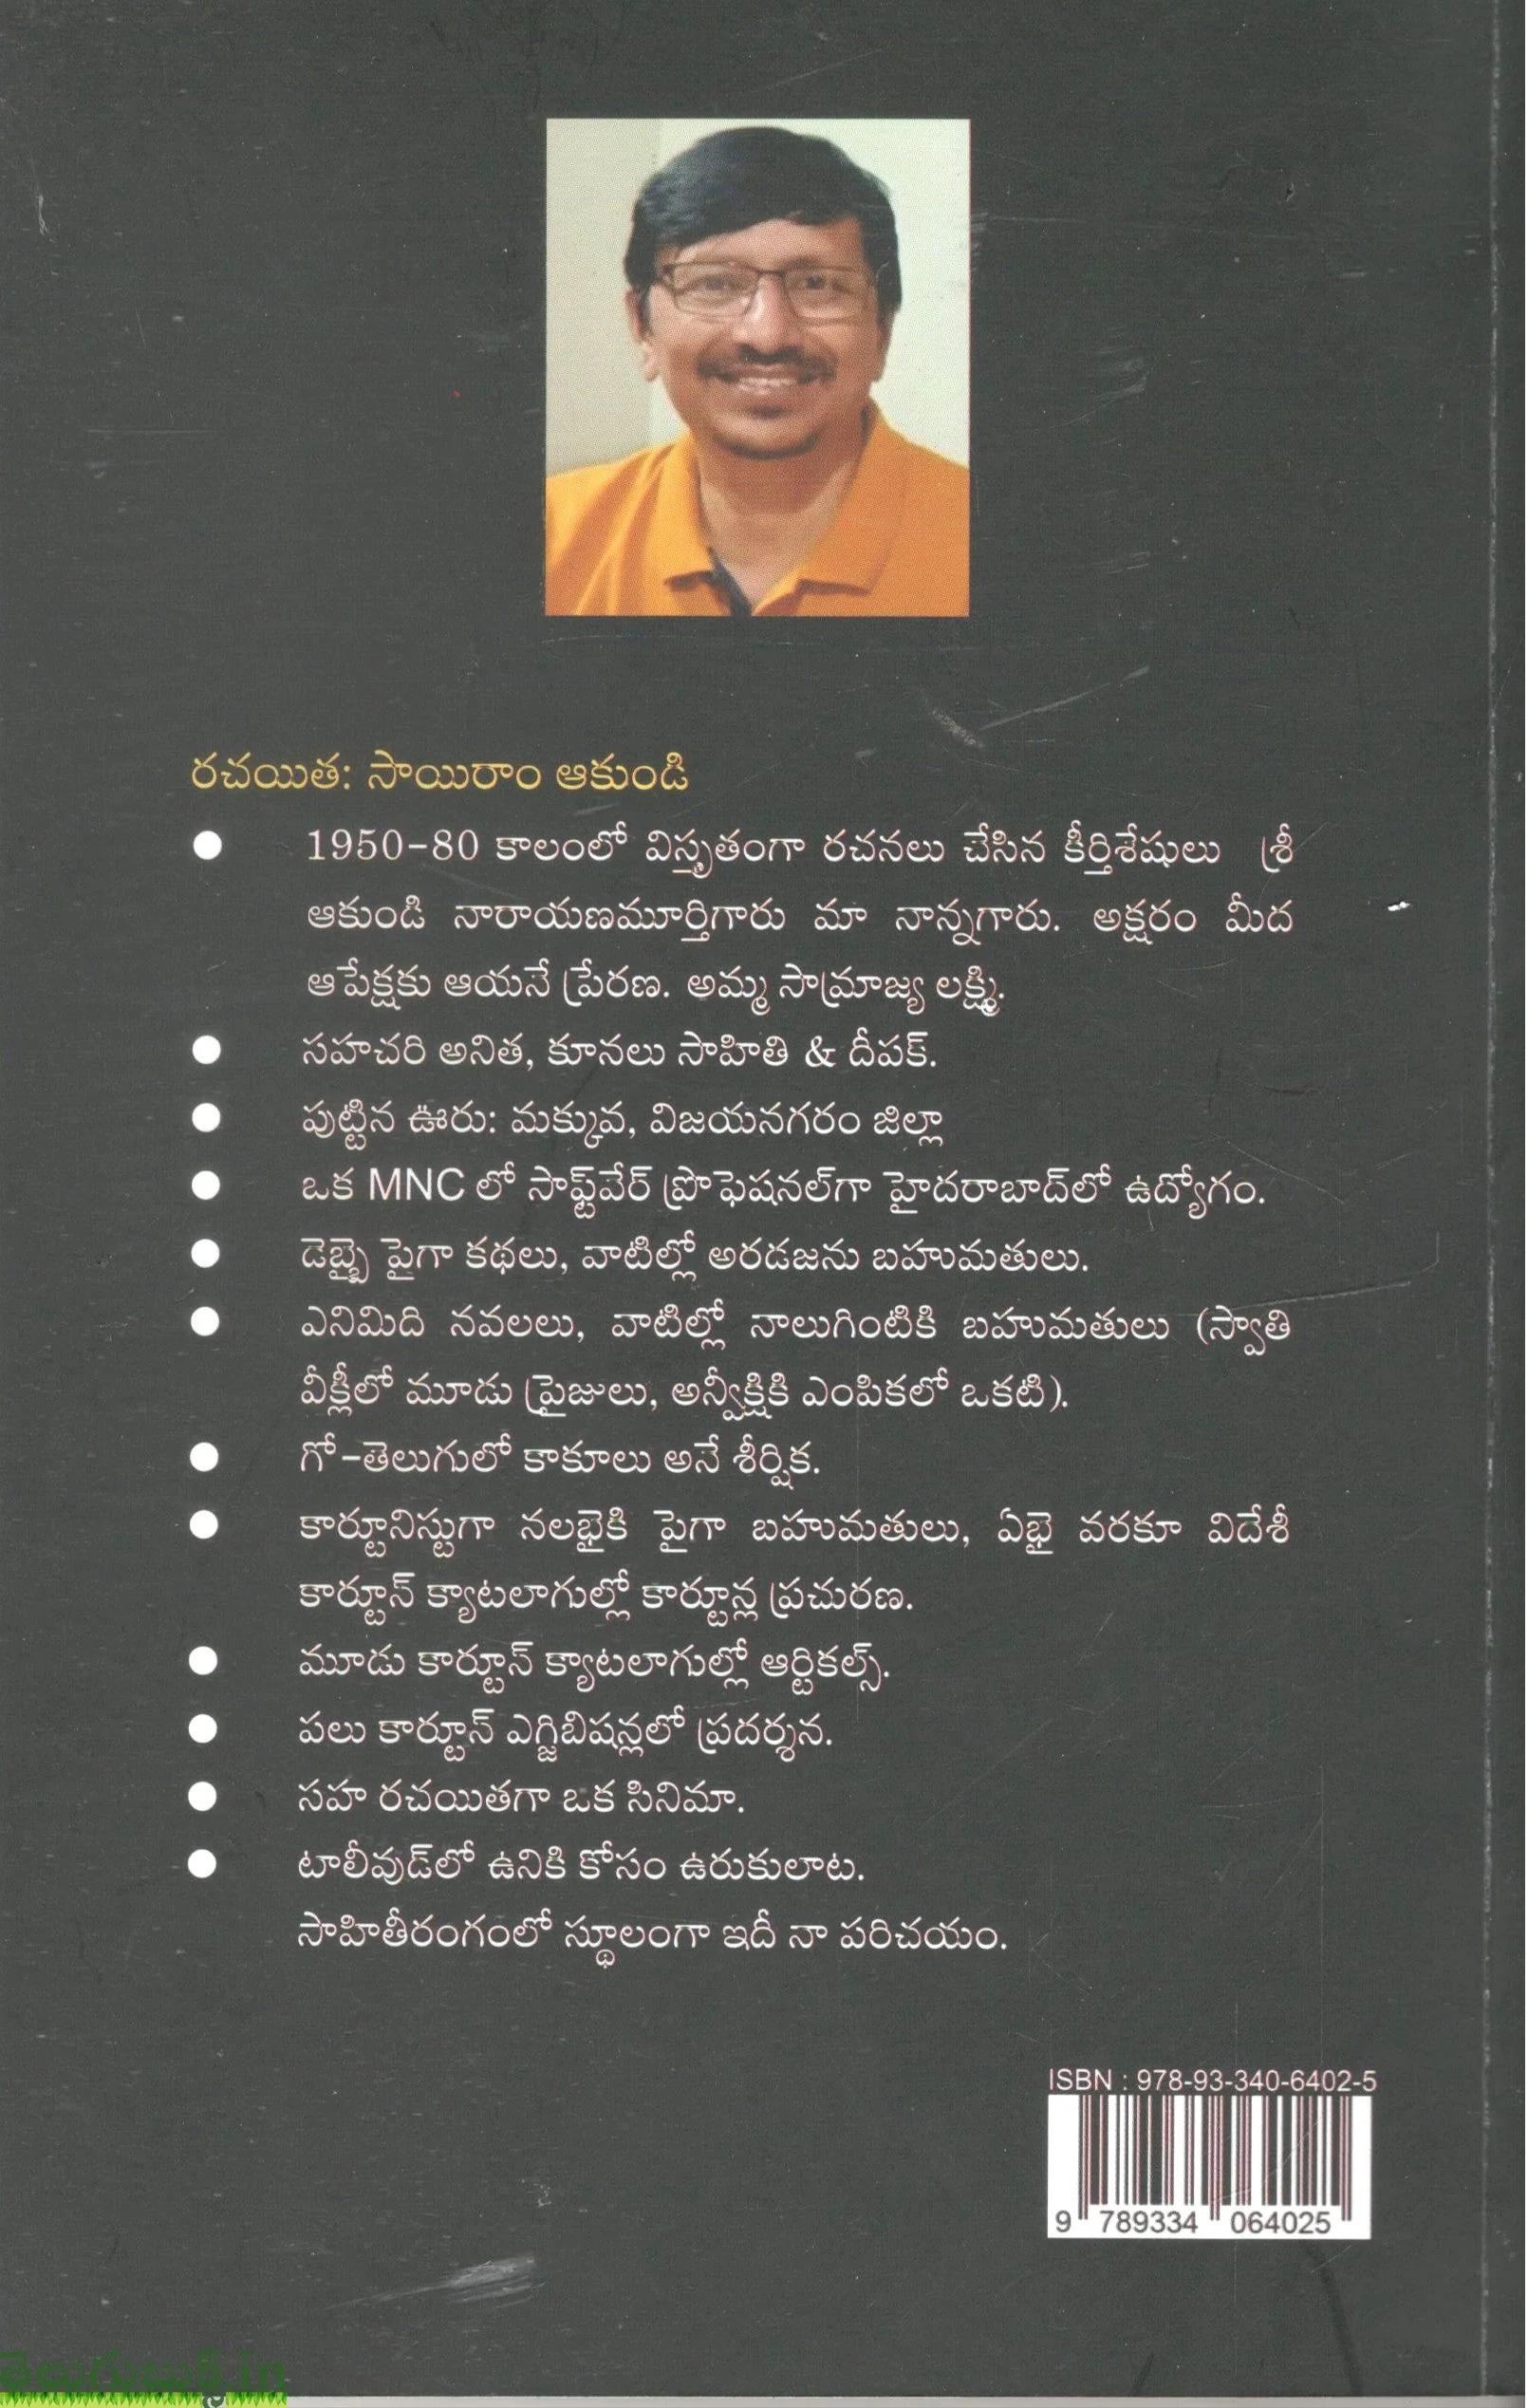 రచయిత: సాయిరాం ఆకుండి
● 1950-80 కాలంలో విస్తృతంగా రచనలు చేసిన కీర్తిశేషులు శ్రీ
ఆకుండి నారాయణమూర్తిగారు మా నాన్నగారు. అక్షరం మీద
ఆపేక్షకు ఆయనే ప్రేరణ. అమ్మ సామ్రాజ్య లక్ష్మి.
● సహచరి అనిత, కూనలు సాహితి & దీపక్.
● పుట్టిన ఊరు: మక్కువ, విజయనగరం జిల్లా
● ఒక MNC లో సాఫ్ట్‌వేర్ ప్రొఫెషనల్‌గా హైదరాబాద్‌లో ఉద్యోగం.
● డెబ్భై పైగా కథలు, వాటిల్లో అరడజను బహుమతులు.
● ఎనిమిది నవలలు, వాటిల్లో నాలుగింటికి బహుమతులు (స్వాతి
వీక్లీలో మూడు ప్రైజులు, అన్వీక్షికి ఎంపికలో ఒకటి).
● గో-తెలుగులో కాకూలు అనే శీర్షిక.
● కార్టూనిస్టుగా నలభైకి పైగా బహుమతులు, ఏభై వరకూ విదేశీ
కార్టూన్ క్యాటలాగుల్లో కార్టూన్ల ప్రచురణ.
● మూడు కార్టూన్ క్యాటలాగుల్లో ఆర్టికల్స్.
● పలు కార్టూన్ ఎగ్జిబిషన్లలో ప్రదర్శన.
● సహ రచయితగా ఒక సినిమా.
● టాలీవుడ్‌లో ఉనికి కోసం ఉరుకులాట.
సాహితీరంగంలో స్థూలంగా ఇదీ నా పరిచయం.
ISBN : 978-93-340-6402-5
9 789334 064025
తెలుగుబుక్స్.in